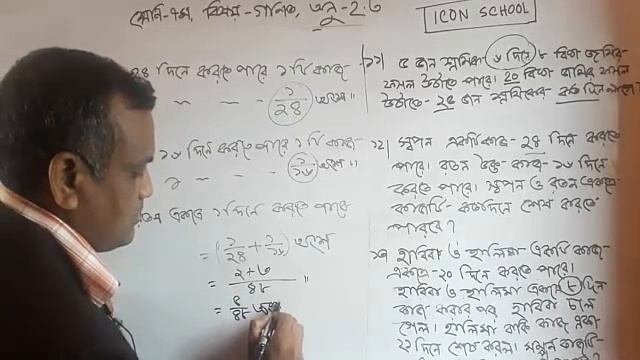 শ্রেনি-৭ম, বিষয়-গনিত, অনু-২.৩
ICON SCHOOL
২৪ দিনে করতে পারে ১টি কাজ
" " - ১/২৪ অংশ।
১৬ দিনে করতে পারে ১টি কাজ
১ " - - ১/১৬ অংশ।
একত্রে ১ দিনে করতে পারে
= (১/২৪ + ১/১৬) অংশ
= ২+৩/৪৮ "
= ৫/৪৮
১১| ৫ জন শ্রমিক ৬ দিনে ৮ বিঘা জমির
ফসল উঠাতে পারে। ২০ বিঘা জমির ফসল
উঠাতে ২৫ জন শ্রমিকের কত দিন লাগবে?
১২| স্বপন একটি কাজ ২৪ দিনে করতে
পারে। রতন উক্ত কাজ ১৬ দিনে
করতে পারে। স্বপন ও রতন একত্রে
কাজটি কতদিনে শেষ করতে
পারবে?
১৩| হাবিবা ও হালিমা একটি কাজ
একত্রে ২০ দিনে করতে পারে।
হাবিবা ও হালিমা একত্রে ৮ দিন
কাজ করার পর হাবিবা চলে
গেল। হালিমা বাকি কাজ একা
২১ দিনে শেষ করল। সম্পূর্ণ কাজটি